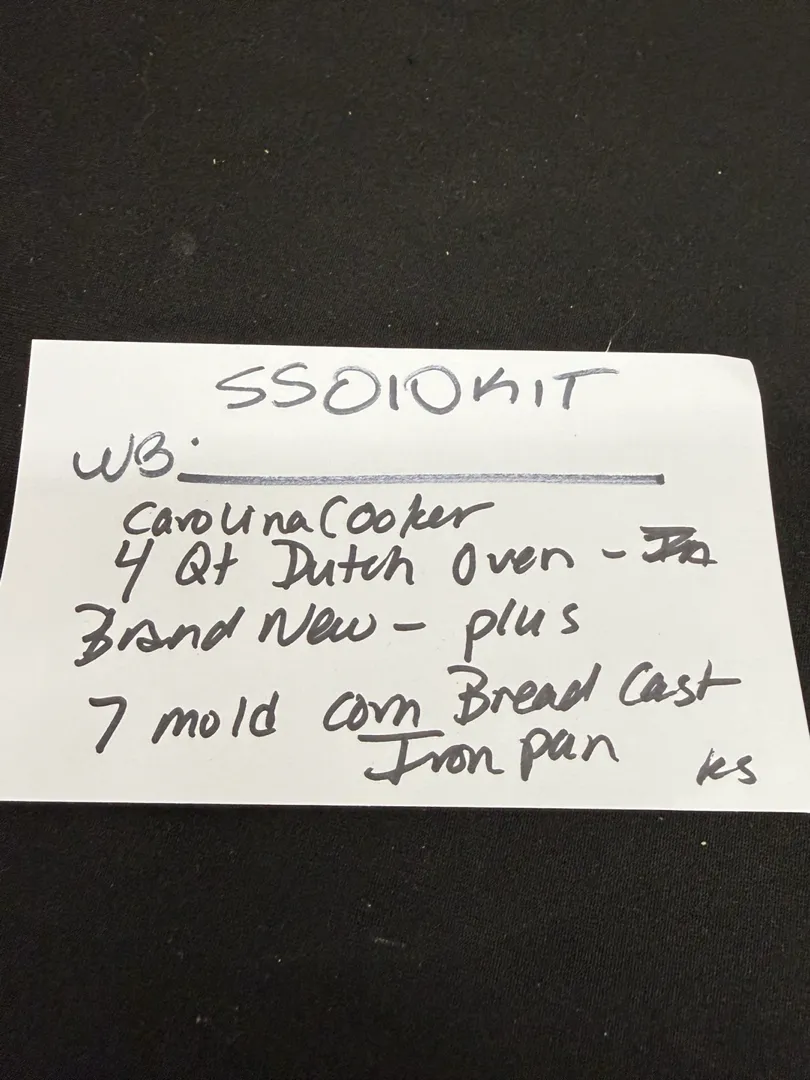 SS010KIT
WB:
Carolina Cooker
4 Qt Dutch Oven -
Brand New - plus
7 mold corn Bread Cast
Iron pan ks